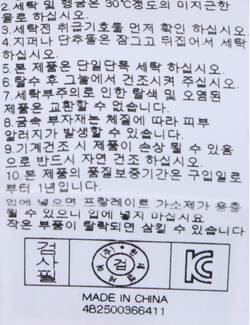 2.세탁 및 헹굼은 30℃정도의 미지근한
물로 하십시오.
3.세탁전 취급기호를 먼저 확인 하십시오
4.지퍼나 단추등은 잠그고 뒤집어서 세탁
하십시오.
5.본 제품은 단일단독 세탁 하십시오.
6.탈수 후 그늘에서 건조시켜 주십시오.
7.세탁부주의로 인한 탈색 및 오염된
제품은 교환할 수 없습니다.
8.금속 부자재는 체질에 따라 피부
알러지가 발생할 수 있습니다.
9.기계건조 시 제품이 손상 될 수 있음
으로 반드시 자연 건조 하십시오.
10.본 제품의 품질보증기간은 구입일로
부터 1년입니다.
입에 넣으면 프탈레이트 가소제가 용출
될 수 있으니 입에 넣지 마십시요
작은 부품이 탈락되면 삼킬 수 있습니다
검
사필
(주)
검
KC
MADE IN CHINA
4B2500366411